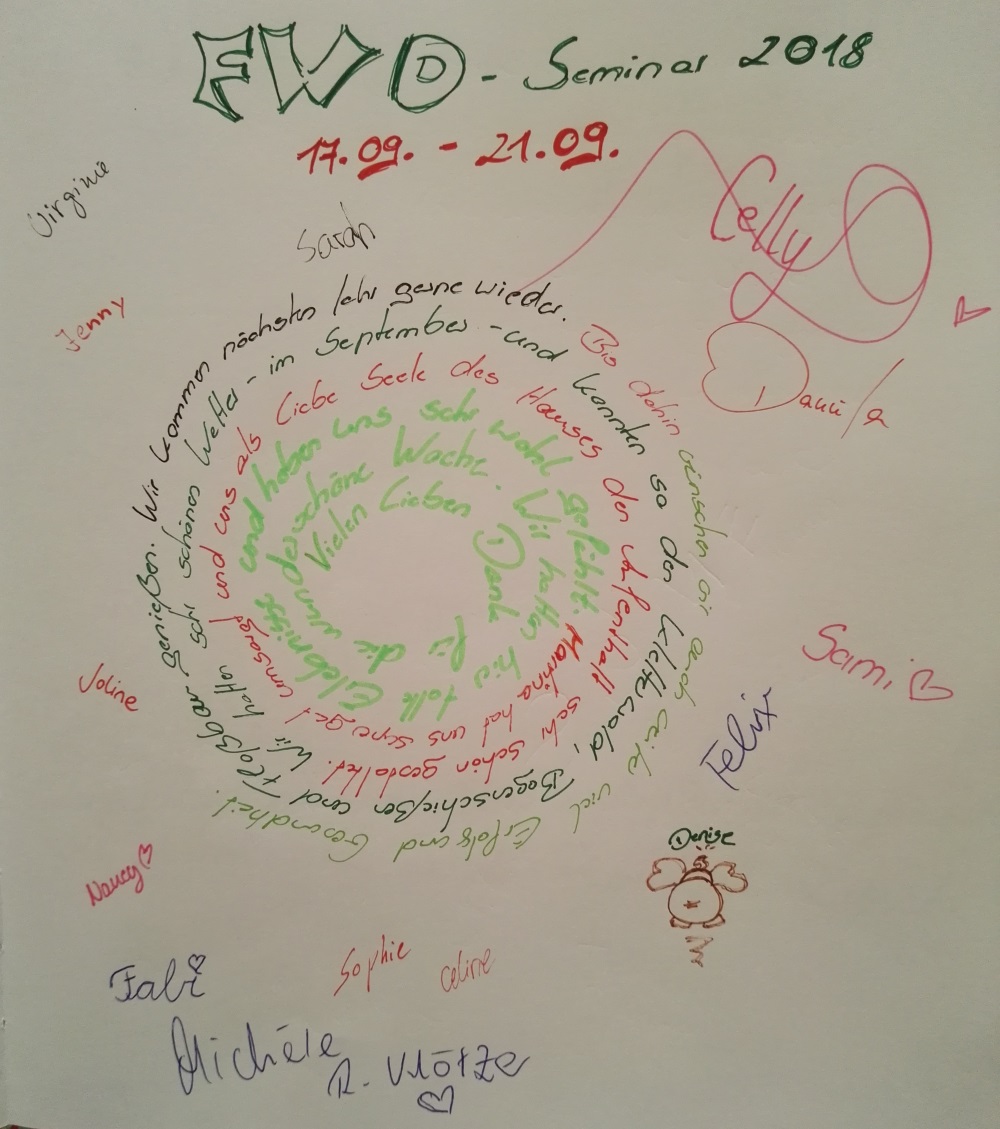 FWD - Seminar 2018
17.09. - 21.09.
Virginie
Sarah
Celly
Jenny
Daniela
Vielen Lieben Dank für die wunderschöne Woche. Wir hatten hier tolle Erlebnisse und haben uns sehr wohl gefühlt. Martina hat uns super gut umsorgt und uns als Liebe Seele des Hauses den Aufenthalt sehr schön gestaltet. Wir hatten sehr schönes Wetter - im September - und konnten so den Kletterwald, Bogenschießen und Floßbau genießen. Wir kommen nächsten Jahr gerne wieder. Bis dahin wünschen wir euch weiter viel Erfolg und Gesundheit.
Sami
Joline
Felix
Denise
Nancy
Sophie
Celine
Fabi
Michéle